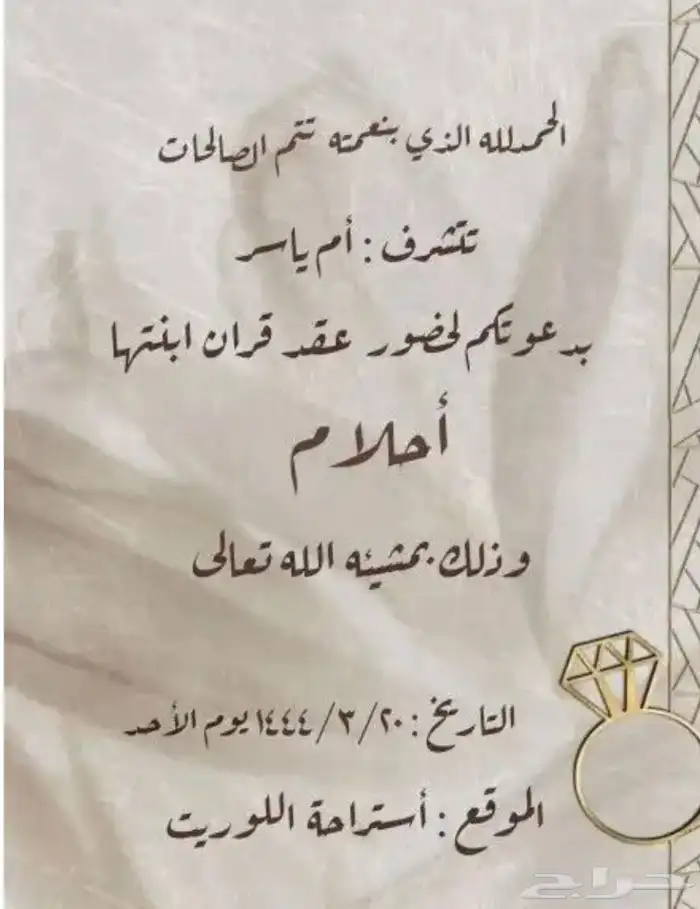 الحمدلله الذي بنعمته تتم الصالحات
تتشرف : أم ياسر
بدعوتكم لحضور عقد قران ابنتها
أحلام
وذلك بمشيئه الله تعالى
التاريخ : ٢٠/٣/١٤٤٤ يوم الأحد
الموقع : أستراحة اللوريت
حراج